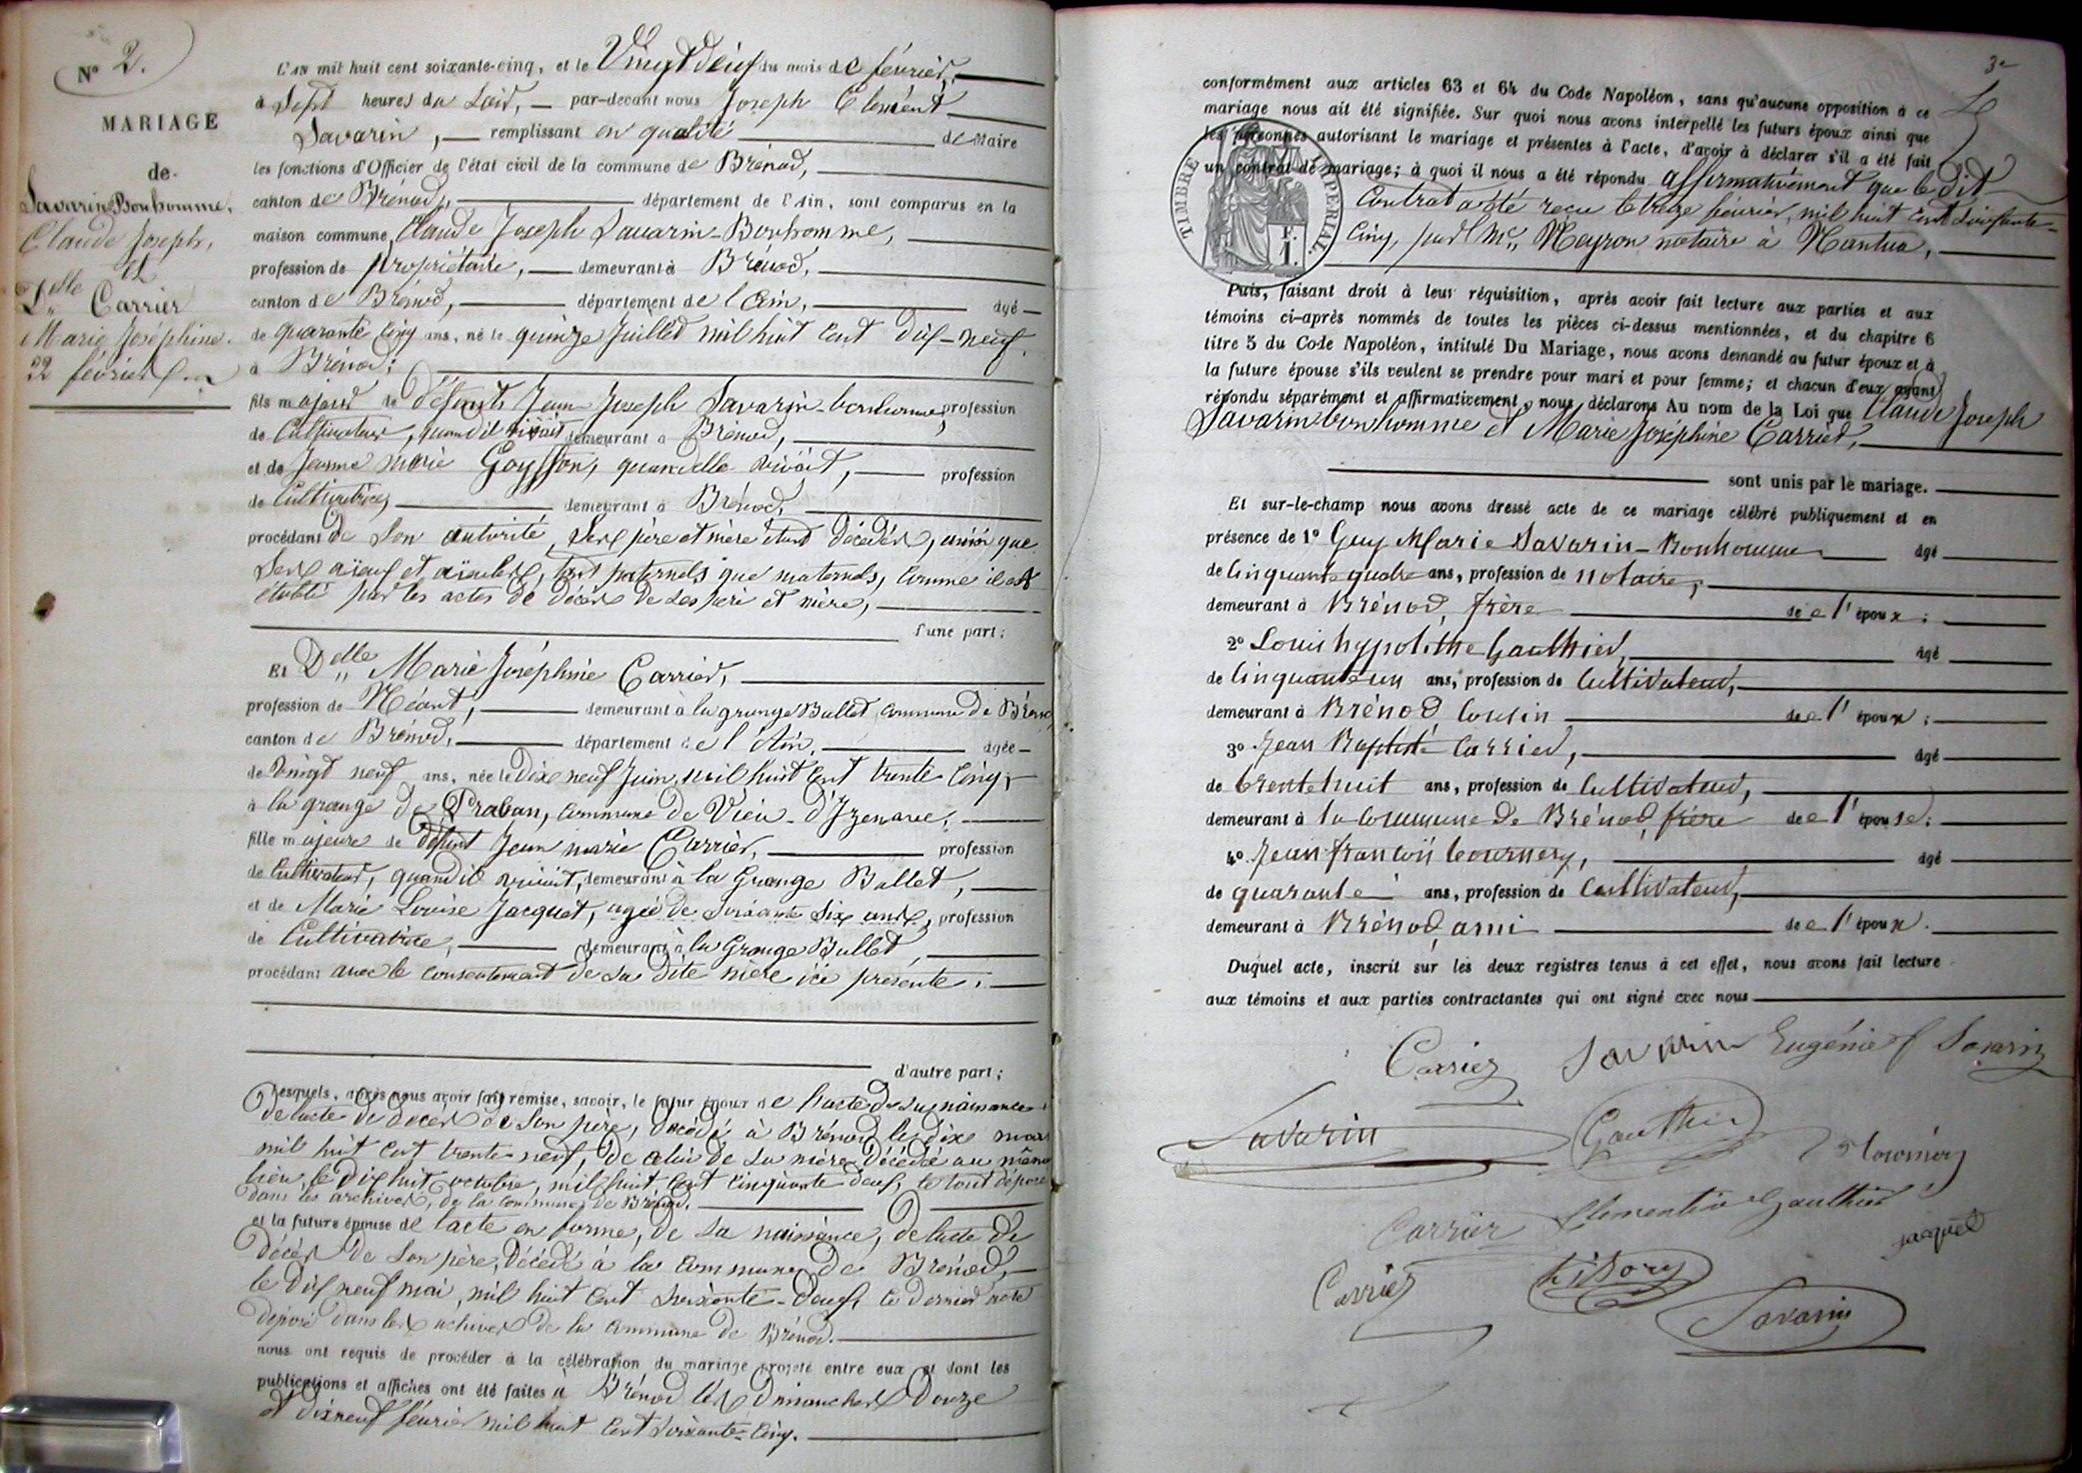 N° 2.
MARIAGE
de
Savarin-Bonhomme,
Claude Joseph,
et
Delle Carrier
Marie Joséphine.
22 février
L'AN mil huit cent soixante-cinq, et le Vingt deux du mois de février,
à Sept heures du Soir, par-devant nous Joseph Clément
Savarin, remplissant en qualité de Maire
les fonctions d'Officier de l'état civil de la commune de Brénod,
canton de Brénod, département de l'Ain, sont comparus en la
maison commune, Claude Joseph Savarin-Bonhomme,
profession de propriétaire, demeurant à Brénod,
canton de Brénod, département de l'Ain, âgé
de quarante cinq ans, né le quinze Juillet mil huit cent dix-neuf,
à Brénod;
fils majeur de défunts Jean Joseph Savarin-bonhomme, profession
de Cultivateur, quand il vivait demeurant à Brénod,
et de Jeanne marie Goyffon, quand elle vivait, profession
de Cultivatrice, demeurant à Brénod,
procédant de Son autorité, Ses père et mère étant décédés, ainsi que
Ses aïeux et aïeules, tant paternels que maternels, comme il est
établi par les actes de décès de Ses père et mère,
d'une part;
Et Delle Marie Joséphine Carrier,
profession de Néant, demeurant à la grange Ballet, commune de Brénod
canton de Brénod, département de l'Ain, âgée
de Vingt neuf ans, née le Dix neuf Juin mil huit cent trente cinq,
à la grange de Praban, commune de Vieu-d'Izenave,
fille majeure de défunt Jean marie Carrier, profession
de Cultivateur, quand il vivait, demeurant à la Grange Ballet,
et de Marie Louise Jacquet, agée de soixante Six ans, profession
de Cultivatrice, demeurant à la Grange Ballet,
procédant avec le consentement de sa dite mère ici présente.
d'autre part;
Lesquels, après nous avoir fait remise, savoir, le futur époux de l'acte de sa naissance,
de l'acte de décès de Son père, décédé à Brénod le dix mars
mil huit cent trente-neuf, de celui de sa mère décédée au même
lieu, le Dix huit octobre, mil huit cent cinquante deux, le tout déposé
dans les archives, de la commune de Brénod.
et la future épouse de l'acte en forme, de sa naissance, de l'acte de
décès de Son père, décédé à la commune de Brénod,
le dix neuf mai, mil huit cent soixante-deux, ce dernier acte
déposé dans les archives de la commune de Brénod.
nous ont requis de procéder à la célébration du mariage projeté entre eux et dont les
publications et affiches ont été faites à Brénod les Dimanches Douze
et dix neuf février mil huit cent soixante-cinq.
3
conformément aux articles 63 et 64 du Code Napoléon, sans qu'aucune opposition à ce
mariage nous ait été signifiée. Sur quoi nous avons interpellé les futurs époux ainsi que
les personnes autorisant le mariage et présentes à l'acte, d'avoir à déclarer s'il a été fait
un contrat de mariage; à quoi il nous a été répondu affirmativement que le dit
Contrat a été reçu le treize février, mil huit cent soixante-
Cinq, par Me. Neyron notaire à Nantua,
TIMBRE IMPERIAL
F.
1.
Puis, faisant droit à leur réquisition, après avoir fait lecture aux parties et aux
témoins ci-après nommés de toutes les pièces ci-dessus mentionnées, et du chapitre 6
titre 5 du Code Napoléon, intitulé Du Mariage, nous avons demandé au futur époux et à
la future épouse s'ils veulent se prendre pour mari et pour femme; et chacun d'eux ayant
répondu séparément et affirmativement, nous déclarons Au nom de la Loi que Claude Joseph
Savarin bonhomme et Marie Joséphine Carrier,
sont unis par le mariage.
Et sur-le-champ nous avons dressé acte de ce mariage célébré publiquement et en
présence de 1° Guy Marie Savarin-Bonhomme âgé
de Cinquante quatre ans, profession de notaire,
demeurant à Brénod, frère de l'époux;
2° Louis hypolithe Gauthier, âgé
de Cinquante un ans, profession de Cultivateur,
demeurant à Brénod Cousin de l'époux;
3° Jean Baptiste Carrier, âgé
de trente huit ans, profession de Cultivateur,
demeurant à la commune de Brénod, frère de l'épouse;
4° Jean françois tournery, âgé
de quarante ans, profession de Cultivateur,
demeurant à Brénod, ami de l'époux.
Duquel acte, inscrit sur les deux registres tenus à cet effet, nous avons fait lecture
aux témoins et aux parties contractantes qui ont signé avec nous
Carrier Savarin Eugénie Savarin
Savarin Gauthier
Carrier Clementine Gauthier Jacquet
Carrier Savarin